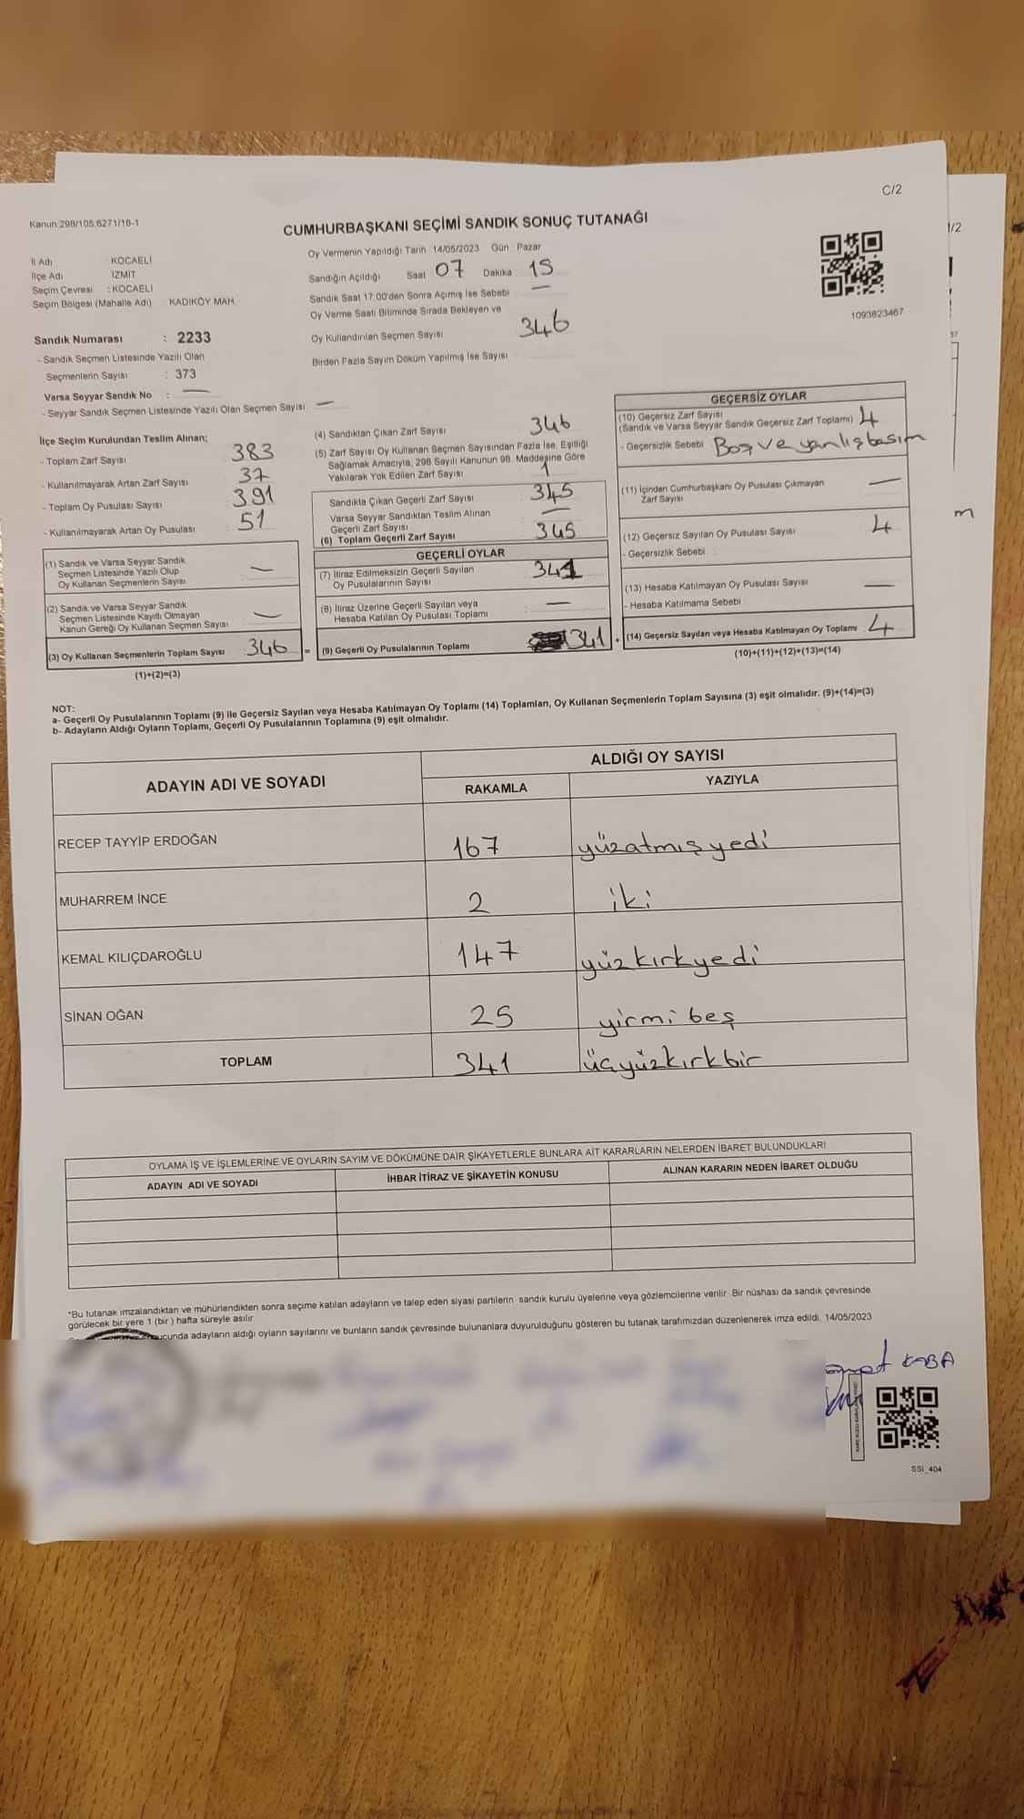 C/2
1/2
Kanun:298/105;6271/18-1
CUMHURBAŞKANI SEÇİMİ SANDIK SONUÇ TUTANAĞI
İl Adı KOCAELİ
İlçe Adı İZMİT
Seçim Çevresi : KOCAELİ
Seçim Bölgesi (Mahalle Adı) KADIKÖY MAH.
Oy Vermenin Yapıldığı Tarih 14/05/2023 Gün Pazar
Sandığın Açıldığı Saat 07 Dakika 15
Sandık Saat 17:00'den Sonra Açımış İse Sebebi —
Oy Verme Saati Bitiminde Sırada Bekleyen ve
Oy Kullandırılan Seçmen Sayısı 346
Birden Fazla Sayım Döküm Yapılmış İse Sayısı
1093823467
Sandık Numarası : 2233
- Sandık Seçmen Listesinde Yazılı Olan
Seçmenlerin Sayısı : 373
Varsa Seyyar Sandık No : —
- Seyyar Sandık Seçmen Listesinde Yazılı Olan Seçmen Sayısı —
İlçe Seçim Kurulundan Teslim Alınan;
- Toplam Zarf Sayısı 383
- Kullanılmayarak Artan Zarf Sayısı 37
- Toplam Oy Pusulası Sayısı 391
- Kullanılmayarak Artan Oy Pusulası 51
(1) Sandık ve Varsa Seyyar Sandık
Seçmen Listesinde Yazılı Olup
Oy Kullanan Seçmenlerin Sayısı —
(2) Sandık ve Varsa Seyyar Sandık
Seçmen Listesinde Kayıtlı Olmayan
Kanun Gereği Oy Kullanan Seçmen Sayısı —
(3) Oy Kullanan Seçmenlerin Toplam Sayısı 346
(1)+(2)=(3)
(4) Sandıktan Çıkan Zarf Sayısı 346
(5) Zarf Sayısı Oy Kullanan Seçmen Sayısından Fazla İse, Eşitliği
Sağlamak Amacıyla, 298 Sayılı Kanunun 98. Maddesine Göre
Yakılarak Yok Edilen Zarf Sayısı 1
Sandıkta Çıkan Geçerli Zarf Sayısı 345
Varsa Seyyar Sandıktan Teslim Alınan
Geçerli Zarf Sayısı —
(6) Toplam Geçerli Zarf Sayısı 345
GEÇERLİ OYLAR
(7) İtiraz Edilmeksizin Geçerli Sayılan
Oy Pusulalarının Sayısı 341
(8) İtiraz Üzerine Geçerli Sayılan veya
Hesaba Katılan Oy Pusulası Toplamı —
(9) Geçerli Oy Pusulalarının Toplamı 341
GEÇERSİZ OYLAR
(10) Geçersiz Zarf Sayısı
(Sandık ve Varsa Seyyar Sandık Geçersiz Zarf Toplamı) 4
- Geçersizlik Sebebi Boş ve yanlış basım
(11) İçinden Cumhurbaşkanı Oy Pusulası Çıkmayan
Zarf Sayısı —
(12) Geçersiz Sayılan Oy Pusulası Sayısı 4
- Geçersizlik Sebebi
(13) Hesaba Katılmayan Oy Pusulası Sayısı —
- Hesaba Katılmama Sebebi
(14) Geçersiz Sayılan veya Hesaba Katılmayan Oy Toplamı 4
(10)+(11)+(12)+(13)=(14)
NOT:
a- Geçerli Oy Pusulalarının Toplamı (9) ile Geçersiz Sayılan veya Hesaba Katılmayan Oy Toplamı (14) Toplamları, Oy Kullanan Seçmenlerin Toplam Sayısına (3) eşit olmalıdır. (9)+(14)=(3)
b- Adayların Aldığı Oyların Toplamı, Geçerli Oy Pusulalarının Toplamına (9) eşit olmalıdır.
ADAYIN ADI VE SOYADI ALDIĞI OY SAYISI
RAKAMLA YAZIYLA
RECEP TAYYİP ERDOĞAN 167 yüzatmışyedi
MUHARREM İNCE 2 iki
KEMAL KILIÇDAROĞLU 147 yüzkırkyedi
SİNAN OĞAN 25 yirmi beş
TOPLAM 341 üçyüzkırkbir
OYLAMA İŞ VE İŞLEMLERİNE VE OYLARIN SAYIM VE DÖKÜMÜNE DAİR ŞİKAYETLERLE BUNLARA AİT KARARLARIN NELERDEN İBARET BULUNDUKLARI
ADAYIN ADI VE SOYADI İHBAR İTİRAZ VE ŞİKAYETİN KONUSU ALINAN KARARIN NEDEN İBARET OLDUĞU
*Bu tutanak imzalandıktan ve mühürlendikten sonra seçime katılan adayların ve talep eden siyasi partilerin sandık kurulu üyelerine veya gözlemcilerine verilir. Bir nüshası da sandık çevresinde
görülecek bir yere 1 (bir) hafta süreyle asılır
ucunda adayların aldığı oyların sayılarını ve bunların sandık çevresinde bulunanlara duyurulduğunu gösteren bu tutanak tarafımızdan düzenlenerek imza edildi. 14/05/2023
KABA
SSI_404